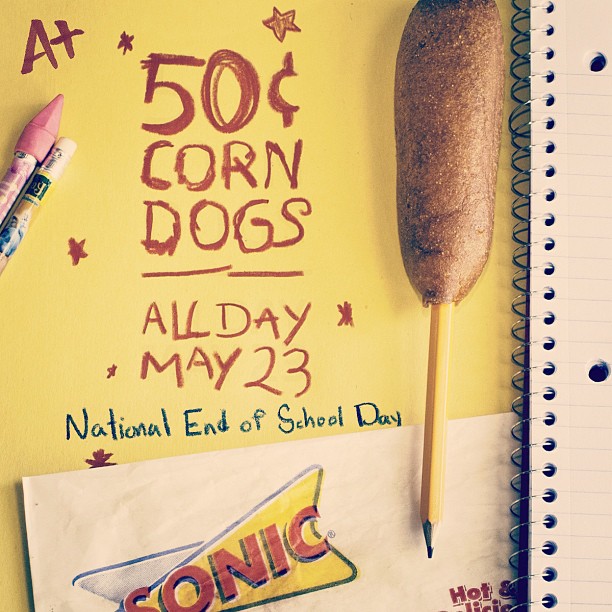 A+
50¢
CORN
DOGS
ALL DAY
MAY 23
National End of School Day
SONIC
Hot &